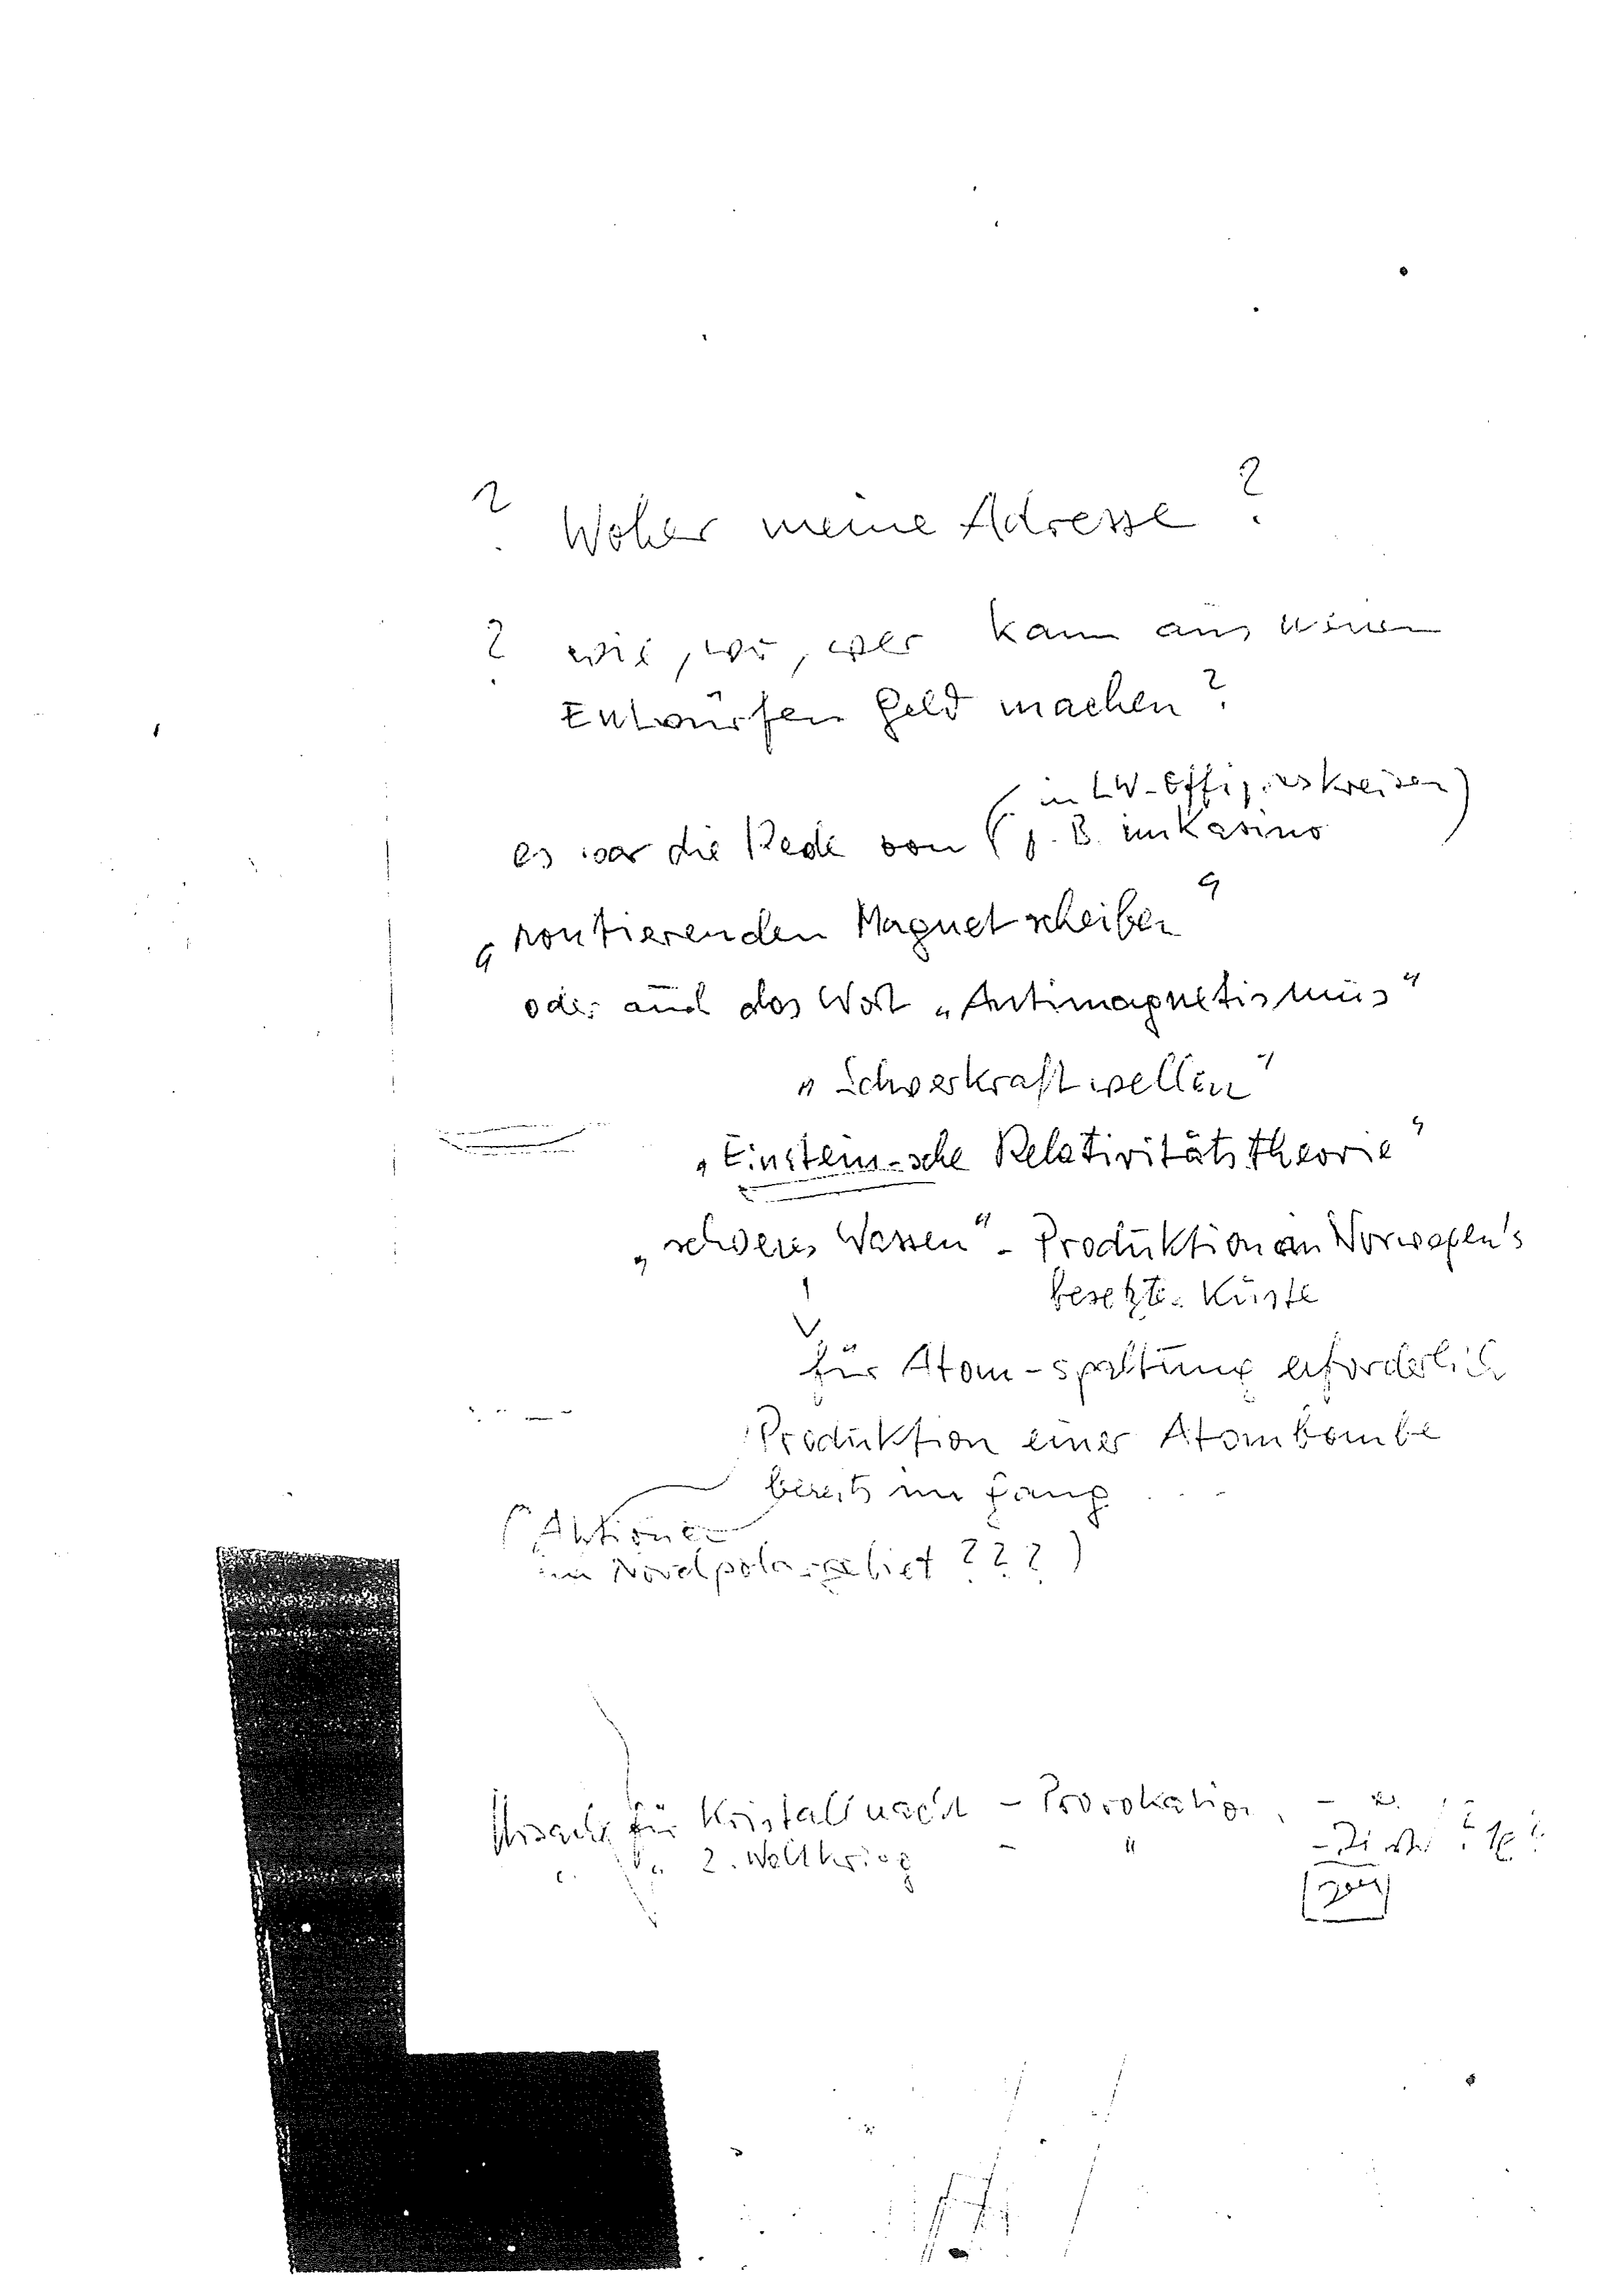 ? Woher meine Adresse ?
? wie, wo, wer kann aus meinen
Entwürfen Geld machen ?
(in LW-Offizierskreisen)
es war die Rede von (z. B. im Kasino
„routierenden Magnetscheiben"
oder auch das Wort „Antimagnetismus"
„Schwerkraftwellen"
„Einstein-sche Relativitätstheorie"
„schweres Wasser" - Produktion an Norwegen's
besetzter Küste
für Atom-spaltung erforderlich
Produktion einer Atombombe
bereits im gang ...
(Aktionen
im Nordpolargebiet ???)
Ursache für Kristallnacht - Provokation
" " 2. Weltkrieg - "